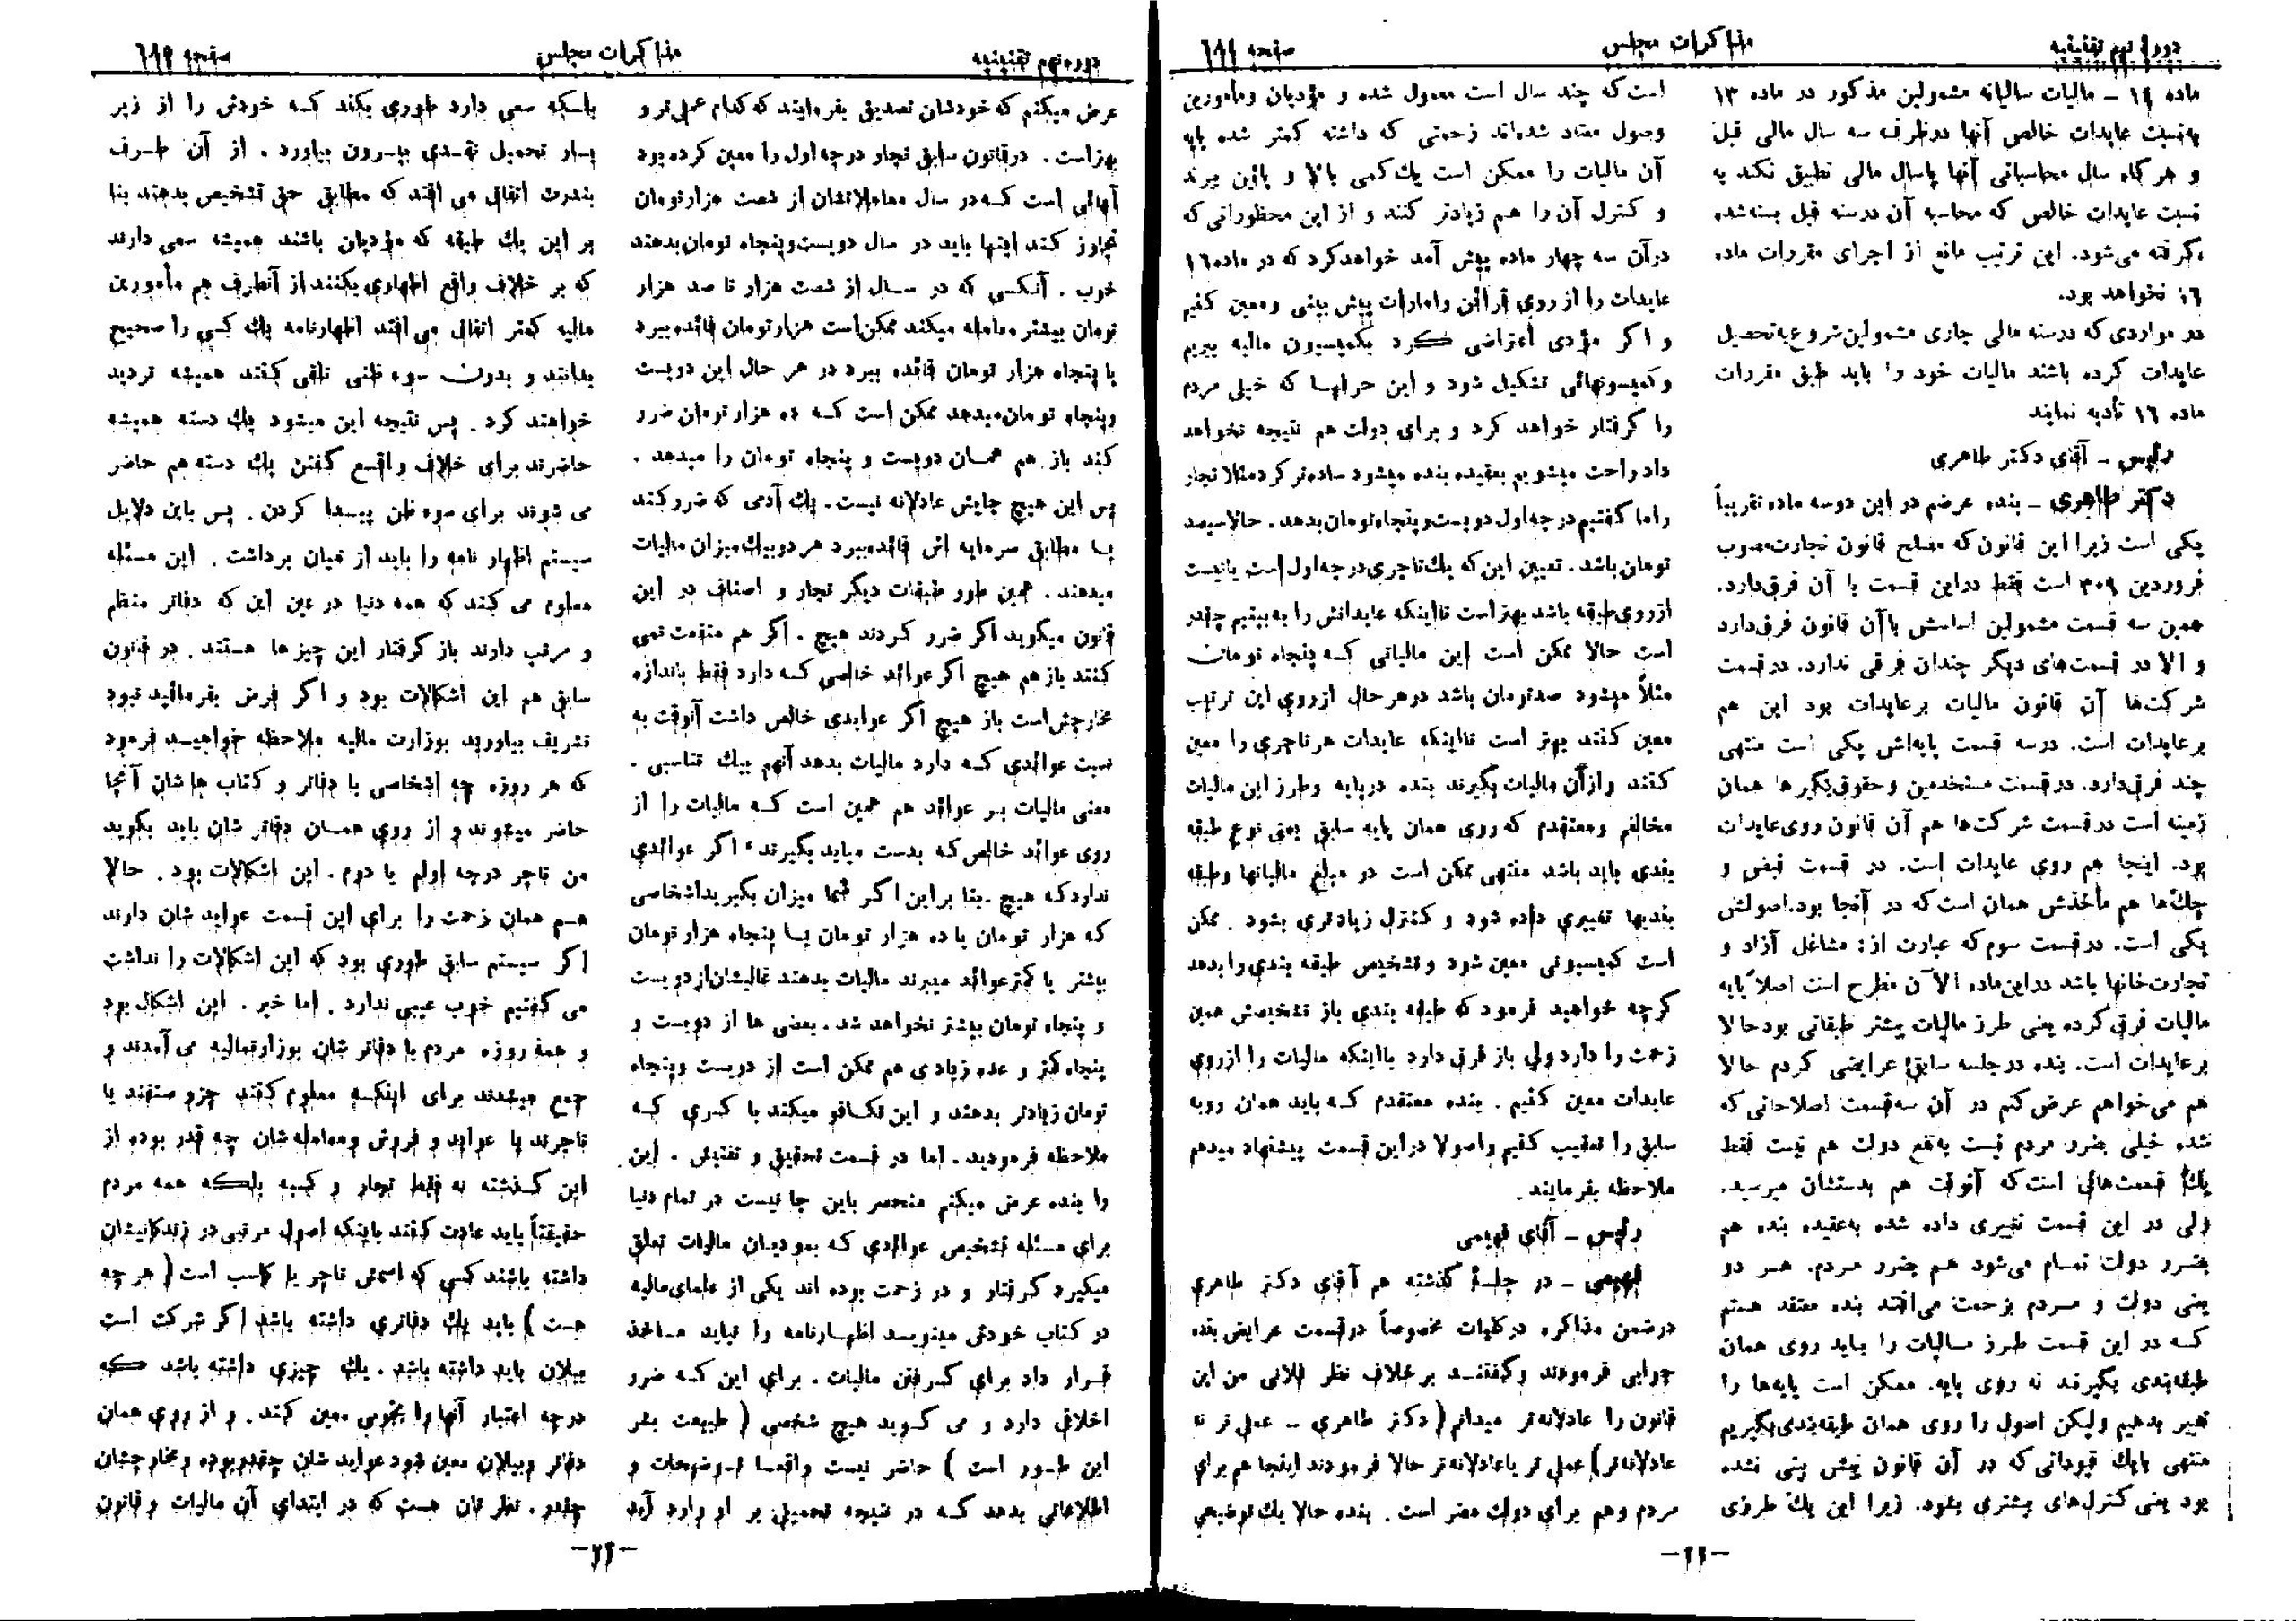 دوره نهم تقنینیه
مذاکرات مجلس
صفحه
ماده ١٤ ـ مالیات سالیانه مشمولین مذکور در ماده ١٣
به‌نسبت عایدات خالص آنها درظرف سه سال مالی قبل
و هرگاه سال محاسباتی آنها باسال مالی تطبیق نکند به
نسبت عایدات خالص که محاسبه آن درسنه قبل بسته‌شده
گرفته می‌شود. این ترتیب مانع از اجرای مقررات ماده
١٦ نخواهد بود.
در مواردی که درسنه مالی جاری مشمولین‌شروع‌به‌تحصیل
عایدات کرده باشند مالیات خود را باید طبق مقررات
ماده ١٦ تأدیه نمایند
رئیس ـ آقای دکتر طاهری
دکتر طاهری ـ بنده عرضم در این دوسه ماده تقریباً
یکی است زیرا این قانون‌که مصلح قانون تجارت‌مصوب
فروردین ٣٠٩ است فقط دراین قسمت با آن فرق‌دارد.
همین سه قسمت مشمولین اساسش باآن قانون فرق‌دارد
و الا در قسمت‌های دیگر چندان فرقی ندارد. درقسمت
شرکت‌ها آن قانون مالیات برعایدات بود این هم
برعایدات است. درسه قسمت پایه‌اش یکی است منتهی
چند فرق‌دارد. درقسمت مستخدمین وحقوق‌بگیرها همان
زمینه است درقسمت شرکت‌ها هم آن قانون روی‌عایدات
بود. اینجا هم روی عایدات است. در قسمت قبض و
چك‌ها هم مأخذش همان است‌که در آنجا بود.اصولش
یکی است. درقسمت سوم‌که عبارت از: مشاغل آزاد و
تجارت‌خانها باشد دراین‌ماده الآن مطرح است اصلاً پایه
مالیات فرق کرده یعنی طرز مالیات بیشتر طبقاتی بودحالا
برعایدات است. بنده درجلسه سابق عرایضی کردم حالا
هم می‌خواهم عرض کنم در آن سه‌قسمت اصلاحاتی که
شده خیلی بضرر مردم نیست به‌نفع دولت هم نیست فقط
یك قسمت‌هائی است‌که آنوقت هم بدستشان میرسید.
ولی در این قسمت تغییری داده شده به‌عقیده بنده هم
بضرر دولت تمـام می‌شود هـم بضرر مـردم. هـر دو
یعنی دولت و مـردم بزحمت می‌افتند بنده معتقد هستم
کـه در این قسمت طـرز مـالیات را بـاید روی همان
طبقه‌بندی بگیرند نه روی پایه. ممکن است پایه‌ها را
تغییر بدهیم ولیکن اصول را روی همان طبقه‌بندی‌بگیریم
منتهی بایك قیوداتی که در آن قانون پیش بینی نشده
بود یعنی کنترل‌های بیشتری بشود. زیرا این یك طرزی
است که چند سال است معمول شده و مؤدیان ومأمورین
وصول معتاد شده‌اند زحمتی که داشته کمتر شده پایه
آن مالیات را ممکن است یك کمی بالا و پائین ببرند
و کنترل آن را هم زیادتر کنند و از این محظوراتی که
درآن سه چهار ماده پیش آمد خواهدکرد که در ماده١٦
عایدات را از روی قرائن وامارات پیش بینی ومعین کنیم
و اگر مؤدی اعتراضی کرد بکمیسیون مالیه ببریم
وکمیسیونهائی تشکیل شود و این حرفهـا که خیلی مردم
را گرفتار خواهد کرد و برای دولت هم نتیجه نخواهد
داد راحت میشویم بعقیده بنده میشود ساده‌تر کردمثلا تجار
راما گفتیم درجه‌اول دویست‌وپنجاه‌تومان‌بدهد. حالاسیصد
تومان باشد. تعیین این که یك‌تاجری‌درجه‌اول است یانیست
ازروی‌طبقه باشد بهتراست تااینکه عایداتش را به‌بینیم چقدر
است حالا ممکن است این مالیاتی کـه پنجاه تومان
مثلاً میشود صدتومان باشد درهرحال ازروی این ترتیب
معین کنند بهتر است تااینکه عایدات هرتاجری را معین
کنند وازآن مالیات بگیرند بنده درپایه وطرز این مالیات
مخالفم ومعتقدم که روی همان پایه سابق یعنی نوع طبقه
بندی باید باشد منتهی ممکن است در مبلغ مالیاتها وطبقه
بندیها تغییری داده شود و کنترل زیادتری بشود . ممکن
است کمیسیونی معین شود وتشخیص طبقه بندی را بدهد
گرچه خواهید فرمود که طبقه بندی باز تشخیصش همین
زحمت را دارد ولی باز فرق دارد بااینکه مالیات را ازروی
عایدات معین کنیم . بنده معتقدم کـه باید همان رویه
سابق را تعقیب کنیم واصولا دراین قسمت پیشنهاد میدهم
ملاحظه بفرمایند.
رئیس ـ آقای فهیمی
فهیمی ـ در جلسهٔ گذشته هم آقای دکتر طاهری
درضمن مذاکره درکلیات مخصوصاً درقسمت عرایض بنده
جوابی فرمودند وگفتنـد برخلاف نظر فلانی من این
قانون را عادلانه‌تر میدانم ( دکتر طاهری ـ عملی تر نه
عادلانه‌تر) عملی تر یاعادلانه‌تر حالا فرمودند اینجا هم برای
مردم وهم برای دولت مضر است . بنده حالا یك توضیحی
دوره‌نهم تقنینیه
مذاکرات مجلس
صفحه
عرض میکنم که خودشان تصدیق بفرمایند که کدام عملی‌تر و
بهتراست . درقانون سابق تجار درجه اول را معین کرده بود
آنهائی است کـه در سال معاملاتشان از شصت هزارتومان
تجاوز کند اینها باید در سال دویست‌وپنجاه تومان‌بدهند
خوب . آنکسی که در سـال از شصت هزار تا صد هزار
تومان بیشتر معامله میکند ممکن‌است هزارتومان فائده ببرد
یا پنجاه هزار تومان فائده ببرد در هر حال این دویست
وپنجاه تومان‌میدهد ممکن است کـه ده هزار تومان ضرر
کند باز هم همـان دویست و پنجاه تومان را میدهد .
پس این هیچ جایش عادلانه نیست . یك آدمی که ضررکند
یـا مطابق سرمایه اش فائده‌ببرد هر دوبیك‌میزان مالیات
میدهند . همین طور طبقات دیگر تجار و اصناف در این
قانون میگوید اگر ضرر کردند هیچ . اگر هم منفعت نمی
کنند بازهم هیچ اگر عوائد خالصی کـه دارد فقط باندازه
مخارجش‌است باز هیچ اگر عوایدی خالص داشت آنوقت به
نسبت عوائدی کـه دارد مالیات بدهد آنهم بیك تناسبی .
معنی مالیات بـر عوائد هم همین است کـه مالیات را از
روی عوائد خالص که بدست میاید بگیرند، اگر عوائدی
ندارد که هیچ . بنا براین اگر شما میزان بگیریداشخاصی
که هزار تومان یا ده هزار تومان یـا پنجاه هزار تومان
بیشتر یا کمترعوائد میبرند مالیات بدهند غالبشان‌ازدویست
و پنجاه تومان بیشتر نخواهد شد . بعضی ها از دویست و
پنجاه کمتر و عده زیادی هم ممکن است از دویست وپنجاه
تومان زیادتر بدهند و این تکـافو میکند با کسری کـه
ملاحظه فرمودید . اما در قسمت تحقیق و تفتیش . این
را بنده عرض میکنم منحصر باین جا نیست در تمام دنیا
برای مسئله تشخیص عوائدی که بمودیـان مالیات تعلق
میگیرد گرفتار و در زحمت بوده اند یکی از علمای‌مالیه
در کتاب خودش مینویسد اظهـارنامه را نباید مـاخذ
قـرار داد برای گـرفتن مالیات . برای این کـه ضرر
اخلاقی دارد و می گـوید هیچ شخصی ( طبیعت بشر
این طـور است ) حاضر نیست واقعـا تـوضیحات و
اطلاعاتی بدهد کـه در نتیجه تحمیلی بر او وارد آید
بلـکه سعی دارد طوری بکند کـه خودش را از زیر
بـار تحمیل نقـدی بیـرون بیاورد . از آن طـرف
بندرت اتفاق می افتد که مطابق حق تشخیص بدهند بنا
بر این یك طبقه که مؤدیان باشند همیشه سعی دارند
که بر خلاف واقع اظهاری بکنند از آنطرف هم مأمورین
مالیه کمتر اتفاق می افتد اظهارنامه یك کسی را صحیح
بدانند و بدون سوء ظنی تلقی کنند همیشه تردید
خواهند کرد . پس نتیجه این میشود یك دسته همیشه
حاضرند برای خلاف واقـع گفتن یك دسته هم حاضر
می شوند برای سوء ظن پیـدا کردن . پس باین دلایل
سیستم اظهار نامه را باید از میان برداشت . این مسئله
معلوم می کند که همه دنیا در عین این که دفاتر منظم
و مرتب دارند باز گرفتار این چیز ها هستند . در قانون
سابق هم این اشکالات بود و اگر فرض بفرمائید نبود
تشریف بیاورید بوزارت مالیه ملاحظه خواهیـد فرمود
که هر روزه چه اشخاصی با دفاتر و کتاب هاشان آنجا
حاضر میشوند و از روی همـان دفاتر شان باید بگوید
من تاجر درجه اولم یا دوم . این اشکالات بود . حالا
هـم همان زحمت را برای این قسمت عواید شان دارند
اگر سیستم سابق طوری بود که این اشکالات را نداشت
می گفتیم خوب عیبی ندارد . اما خیر . این اشکال بود
و همهٔ روزه مردم با دفاتر شان بوزارتمالیه می آمدند و
جمع میشدند برای اینکـه معلوم کنند جزو صنفند یا
تاجرند با عواید و فروش ومعامله شان چه قدر بوده از
این گـذشته نه فقط تجار و کسبه بلـکه همه مردم
حقیقتاً باید عادت کنند باینکه اصول مرتبی‌در زندگانیشان
داشته باشند کسی که اسمش تاجر یا کاسب است ( هرچه
هست ) باید یك دفاتری داشته باشد اگر شرکت است
بیلان باید داشته باشد . یك چیزی داشته باشد که
درجه اعتبار آنها را بخوبی معین کند . و از روی همان
دفاتر وبیلان معین شود عواید شان چقدر بوده و مخارجشان
چقدر . نظر تان هست که در ابتدای آن مالیات و قانون